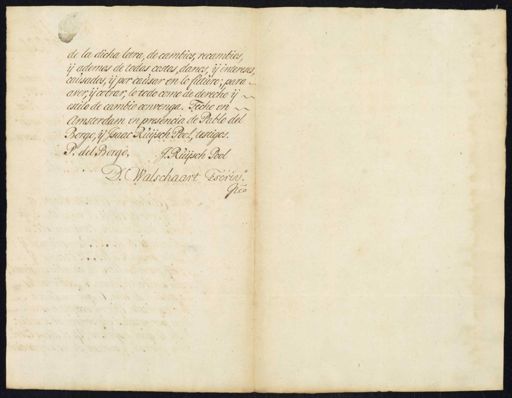 de la dicha letra, de cambios, recambios,
ÿ ademas de todos costos, danos, ÿ intereses,
causados, ÿ por causar en lo futuro; para
aver, ÿ cobrar, lo todo como de derecho ÿ
estilo de cambio convenga. Fecho en
Amsterdam en presencia de Pablo del
Borgo, ÿ Isaac Ruÿsch Pool, testigos.
P. del Borgo, J. Ruÿsch Pool
D. Walschaart